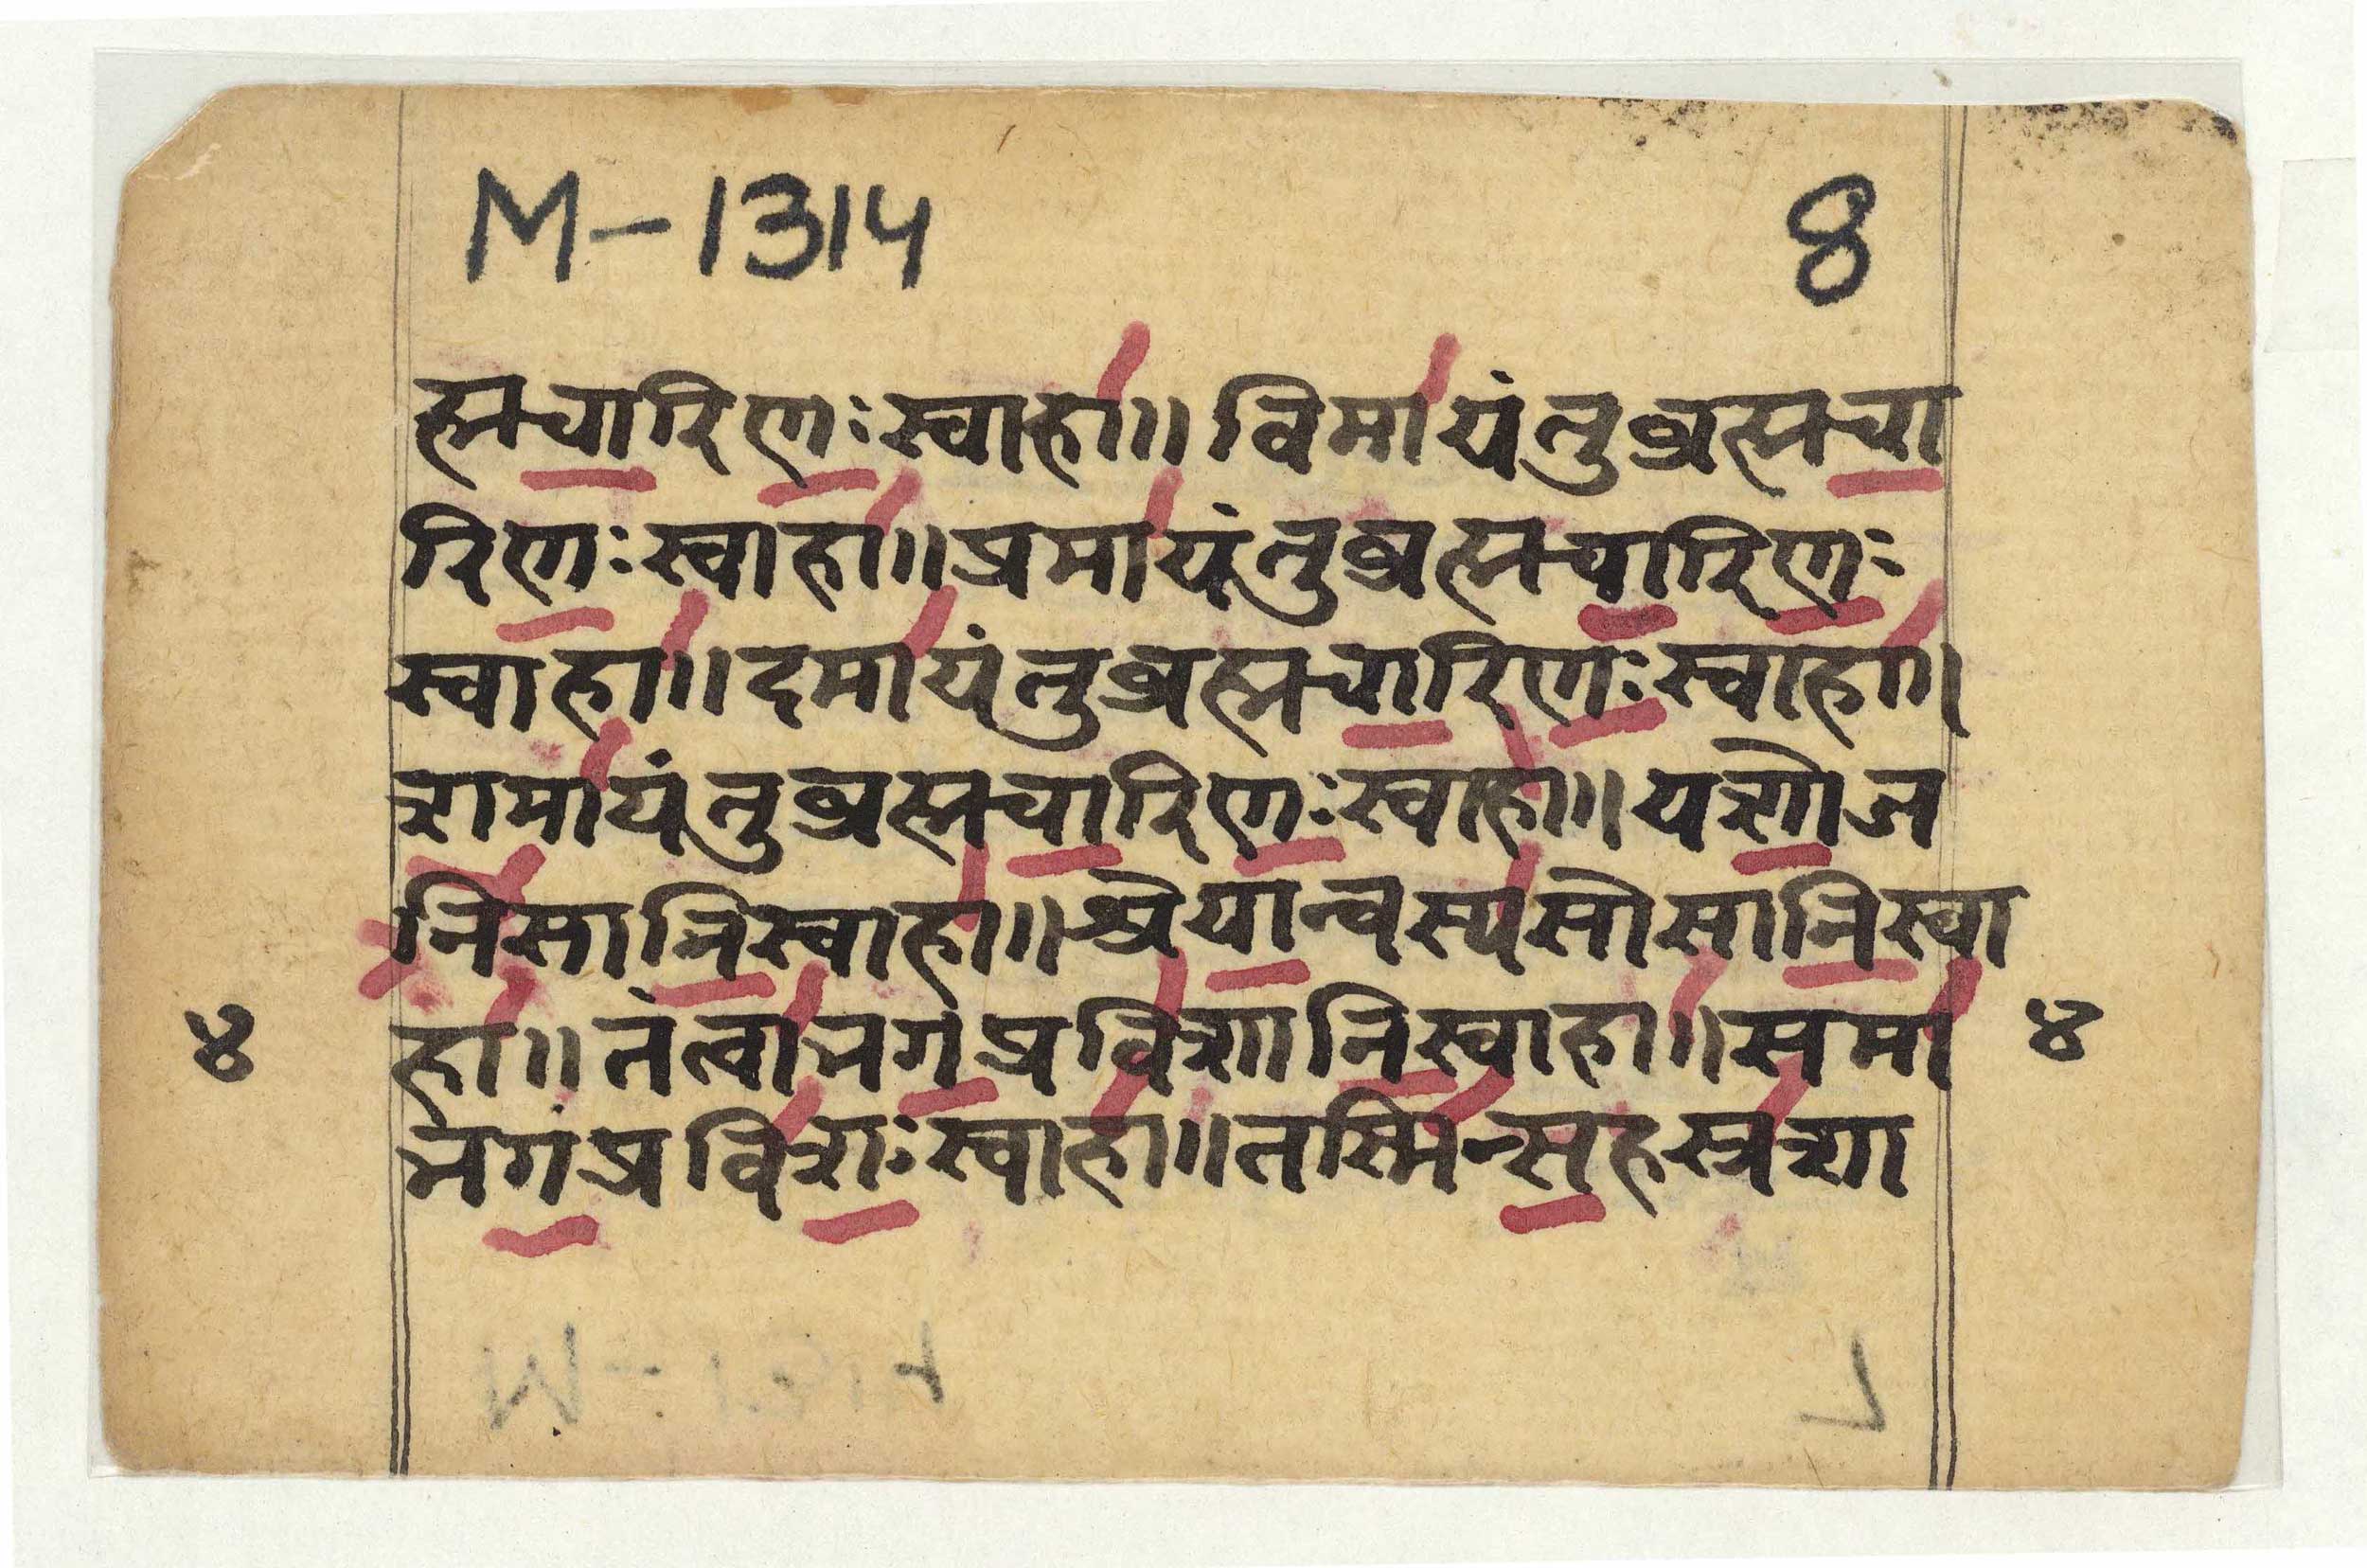 M-1314 8
ह्मचारिणः स्वाहा॥ विमायंतुब्रह्मचा
रिणः स्वाहा॥ प्रमायंतुब्रह्मचारिणः
स्वाहा॥ दमायंतुब्रह्मचारिणः स्वाहा।
शमायंतुब्रह्मचारिणः स्वाहा॥ यशोज
नेसानिस्वाहा॥ श्रेयान्वस्यसोसानिस्वा
४ हा॥ तंत्वाभगप्रविशानिस्वाहा॥ समा ४
भगप्रविशः स्वाहा॥ तस्मिन्सहस्रशा